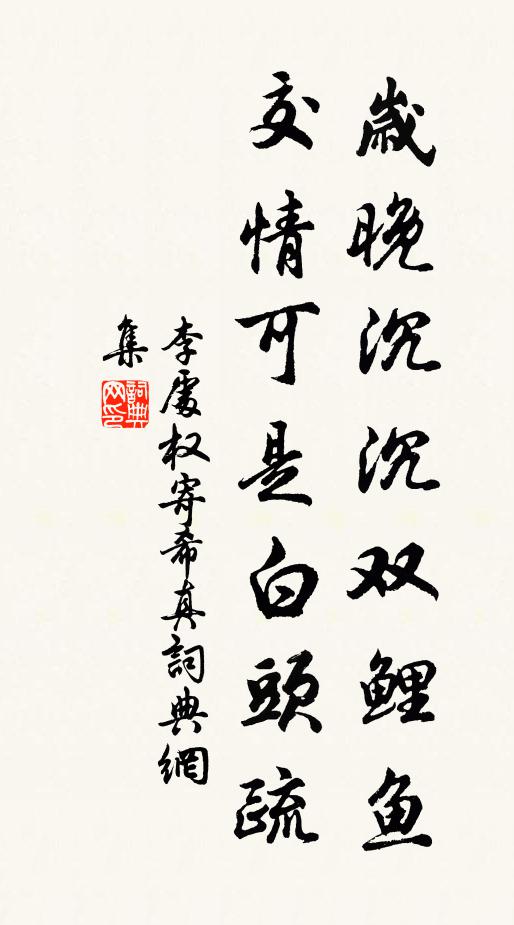 歲晚沉沉双鲤鱼
交情可是白頭疏
李處权寄希真詞典網
集
詞典
网印